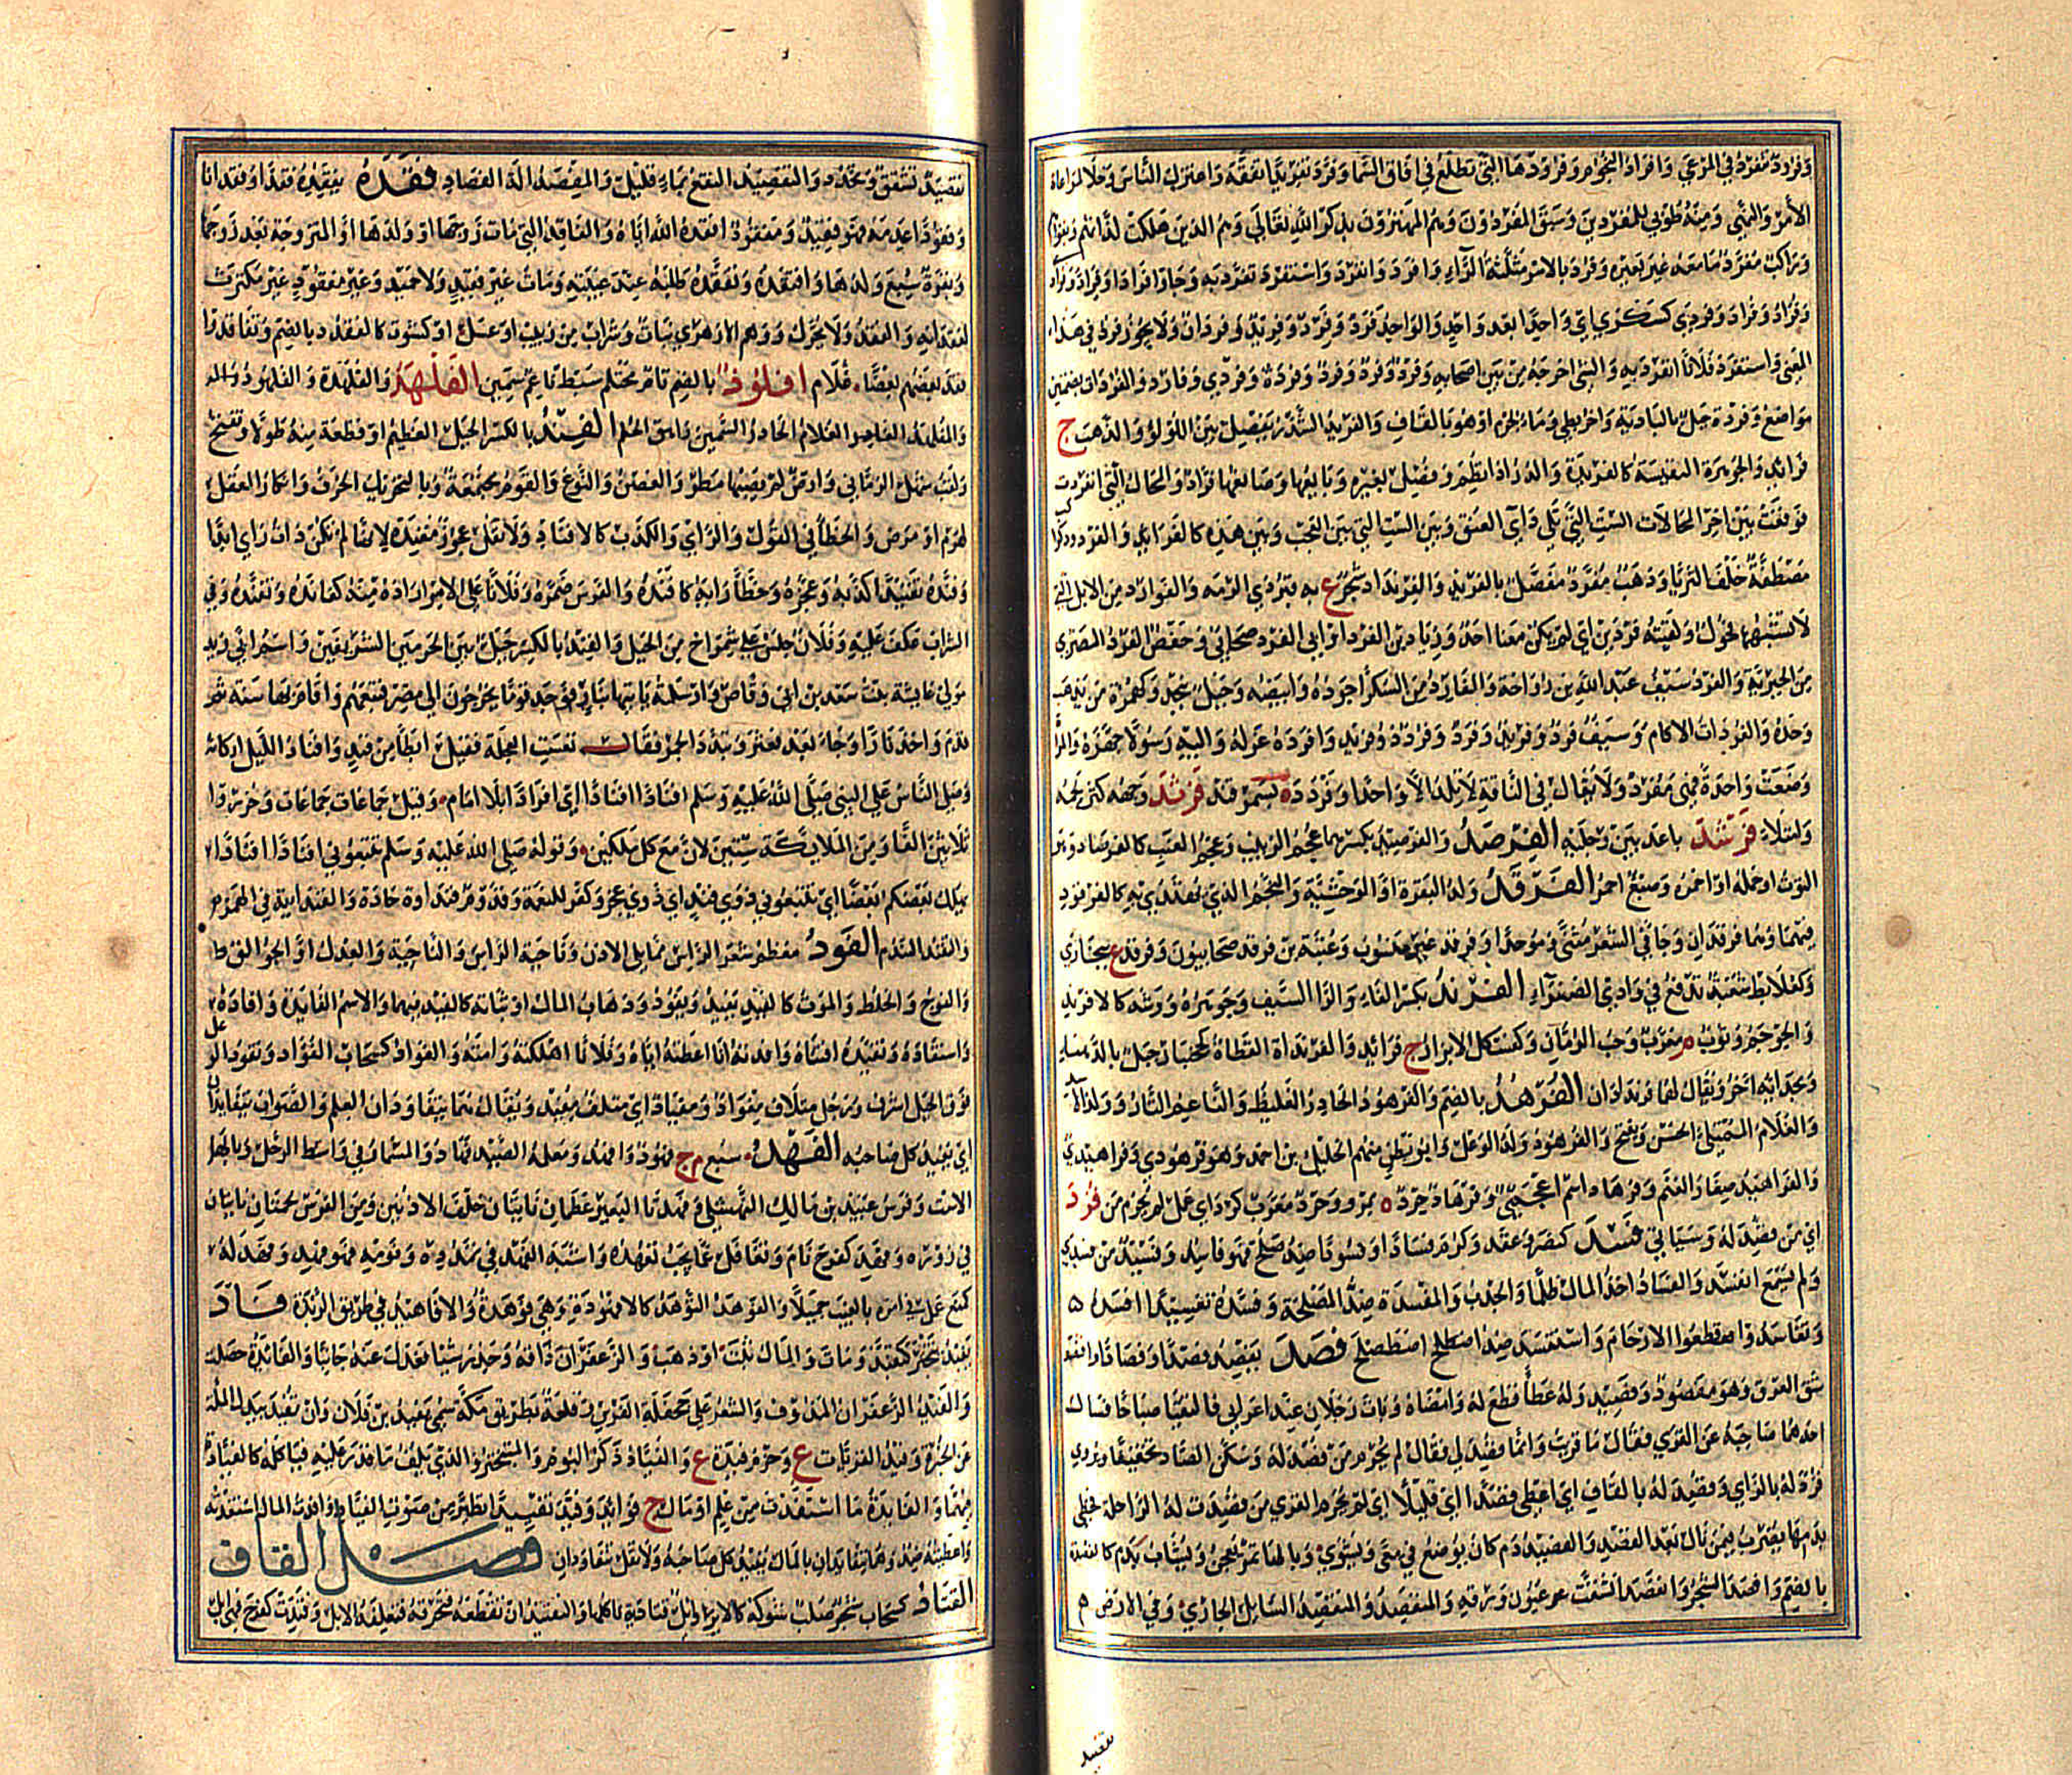 وفردة تنفرد في المرعى وافراد النجوم وفرودها التي تطلع في افاق السما وفرد تفريدا تفقه واعتزل الناس وخلا لمراعاة
الأمر والنهي ومنه طوبى للمفردين وسبق المفردون وهم المهتزون بذكر الله تعالى وهم الذين هلكت لداتهم وبقوا هم
وراكب مفرد ما معه غير بعيره وفرد بالامر مثلثة الراء وافرد وانفرد واستفرد تفرد به وجاوا فرادا وفراد وفراد
وفراد وفردى كسكرى اي واحدا بعد واحد والواحد فرد وفرد وفريد وفردان ولا يجوز فرد في هذا
المعنى واستفرد فلانا انفرد به والشي اخرجه من بين اصحابه وفرد وفرد وفرد وفردة وفردى وفارد والفردات بضمتين
مواضع وفردة جبل بالبادية واخر لطي وماء لجرم او هو بالقاف والفريد الشذر يفصل بين اللولؤ والذهب ج
فرائد والجوهرة النفيسة كالفريدة والدر اذا نظم وفصل بغيره وبايعها وصانعها فراد والمحال التي انفردت
فوقعت بين اخر المحالات الست التي تلي داي العنق وبين الست التي بين العجب وبين هذه كالفرايد والفردود كواكب
مصطفة خلف الثريا وذهب مفرد مفصل بالفريد والفرنداد شجر ع به قبر ذي الرمه والفوارد من الابل التي
لا تشبهها فحول ولقيته فردين اي لم يكن معنا احد وزياد بن الفرد او ابي الفرد صحابي وحفص الفرد المصري
من الجبرية والفرد سيف عبد الله بن رواحة والفارد من السكر اجوده وابيضه وجبل بنجد وكهمزة من يذهب
وحده والفردات الاكام وسيف فرد وفريد وفرد وفردد وفرند وافرده عزله واليه رسولا جهزه والمراة
وضعت واحدة فهي مفرد ولا يقال في الناقة لانها لا تلد الا واحدا وفرددة بسمرقند فرثد وجهه كثر لحمه
وامتلاء فرشد باعد بين رجليه الفرصد والفرصيد بكسرهما عجم الزبيب وعجم العنب كالفرصاد وهو
التوت او حمله او احمره وصبغ احمر الفرقد ولد البقرة او الوحشية والنجم الذي يهتدى به كالفرقود
فيهما وهما فرقدان وجا في الشعر مثنى وموحدا وفرقد غير منسوب وعتبة بن فرقد صحابيون وفرقد ع ببخارى
وكعلابط شعبة تدفع في وادي الصفراء الفرند بكسر الفاء والرا السيف وجوهره ووشيه كالافرند
والحوجم وثوب م معرب وحب الرمان وكفستكل الابزار ج فرائد والفرنداة القطاة كحبنطاة وجبل بالدهناء
وبحذائه اخر ويقال لهما فرندادان الفرهد بالضم والفرهود الحادر الغليظ والناعم التار وولد الاسد
والغلام الممتلئ الحسن ويفتح والفرهود ولد الوعل وابو بطن منهم الخليل بن احمد وهو فرهودي وفراهيدي
والفراهيد صغار الغنم وفرهاد اسم اعجمي وفرهاذجرد ة بمرو وجرد معرب كرد اي عمل لم يحرم من فزد
اي من فصد له وسياتي فسد كنصر وعقد وكرم فسادا وفسودا ضد صلح فهو فاسد وفسيد من فسدى
ولم يسمع انفسد والفساد اخذ المال ظلما والجدب والمفسدة ضد المصلحة وفسده تفسيدا افسده
وتفاسدوا قطعوا الارحام واستفسد ضد استصلح فصد يفصد فصدا وفصادا وافتصد
شق العرق وهو مفصود وفصيد وله عطا قطع له وامضاه وبات رجلان عند اعرابي فالتقيا صباحا فسال
احدهما صاحبه عن القرى فقال ما قريت وانما فصد لي فقال لم يحرم من فصد له وسكن الصاد تخفيفا ويروى
فزد له بالزاي وقصد له بالقاف اي اعطي قصدا اي قليلا اي لم يحرم القرى من فصدت له الراحلة فحظي
بدمها يضرب فيمن نال بعض القصد والفصيد دم كان يوضع في معى ويشوى وبالها تمر يعجن ويشاب بدم كالفصدة
بالضم وافصد الشجر وانفصد انشقت عيون ورقه والمنفصد والمتفصد السايل الجاري وفي الارض م
تفصيد
تفصيد تشقق وتخدد والتفصيد النقع بماء قليل والمفصد الة الفصاد فقده يفقده فقدا وفقدانا
وفقودا عدمه فهو فقيد ومفقود افقده الله اياه والفاقد التي مات زوجها او ولدها او المتزوجة بعد زوجها
وبقرة سبع ولدها وافتقده وتفقده طلبه عند غيبته ومات غير فقيد ولا حميد وغير مفقود غير مكترث
لفقدانه والفقد ولا يحرك ووهم الازهري نبات وشراب من زبيب او عسل او كشوث كالفقدد بالضم وتفاقدوا
فقد بعضهم بعضا غلام افلود بالضم تام محتلم سبط ناعم سمين الفلهد والفلهدة والفلهود
والمفلهد الغلام الحادر السمين راهق الحلم الفند بالكسر الجبل العظيم او قطعة منه طولا ويفتح
ولقب شهل الزماني وارض لم يصبها مطر والغصن والنوع والقوم مجتمعة وبالتحريك الخرف وانكار العقل
لهرم او مرض والخطأ في القول والراي والكذب كالافناد ولا تقل عجوز مفندة لانها لم تكن ذات راي ابدا
وفنده تفنيدا كذبه وعجزه وخطا رايه كافنده والفرس ضمره وفلانا على الامر اراده منه كفانده وتفنده وفي
الشراب عكف عليه وفلان جلس على شمراخ من الجبل والفند بالكسر جبل بين الحرمين الشريفين واسم ابي زيد
مولى عايشة بنت سعد بن ابي وقاص وارسلته ياتيها بنار فوجد قوما يخرجون الى مصر فتبعهم واقام بها سنة ثم
قدم واخذ نارا وجاء يعدو فعثر وتبدد الجمر فقال تعست العجلة فقيل ابطا من فند وافناد الليل اركانه
وصلى الناس على النبي صلى الله عليه وسلم افنادا افنادا اي افرادا بلا امام وقيل جماعات جماعات وحزروا
ثلاثين الفا ومن الملايكة ستين لان مع كل ملكين وقوله صلى الله عليه وسلم تتبعوني افنادا افنادا
يهلك بعضكم بعضا اي تتبعوني ذوي فند اي ذوي عجز وكفر للنعمة وقدوم فنداوة حادة والفنداية في الهمز
والتفند التندم الفود معظم شعر الراس مما يلي الاذن وناحية الراس والناحية والعدل والجوالق
والفوج والخلط والموت كالفيد يفيد ويفود وذهاب المال او ثباته كالفيد فيهما والاسم الفايدة وافاده
واستفاده وتفيده اقتناه وافدته انا اعطيته اياه وفلانا اهلكته وامته والفواد كسحاب الفؤاد وتفود الوعل
فوق الجبل اشرف ورجل متلاف مفواد ومفياد اي متلف مفيد ويقال هما يتفاودان العلم والصواب يتفايدان
اي يفيد كل صاحبه الفهد سبع م ج فهود وافهد ومعلمه الصيد فهاد والمسمار في واسط الرحل وبالها
الاست وفرس عبيد بن مالك النهشلي وفهدتا البعير عظمان ناتئان خلف الاذنين ومن الفرس لحمتان ناتيتان
في زوره وفهد كفرح نام وتغافل عما يجب تعهده واشبه الفهد في تمدده ونومه فهو فهد وفهد له
كمنع عمل في امره بالغيب جميلا والفوهد الثوهد كالافهود وهي فوهدة والافاهيد في طريق الربذة فاد
يفيد تبختر كتفيد ومات والمال ثبت او ذهب والزعفران دافه وحذر شيا فعدل عنه جانبا والفايدة حصلت
والفيد الزعفران المدوف والشعر على جحفلة الفرس وقلعة بطريق مكة سمي بفيد بن فلان وان تفيد بيدك الملة
عن الخبزة وفيد القريات ع وحزم فيدة ع والفياد ذكر البوم والمتبختر والذي يلف ما قدر عليه فياكله كالفيادة
فيهما والفايدة ما استفدت من علم او مال ج فوائد وفيد تفييدا تطير من صوت الفياد وافدت المال استفدته
واعطيته ضد وهما يتفايدان بالمال يفيد كل صاحبه ولا تقل يتفاودان فصل القاف
القتاد كسحاب شجر صلب شوكه كالابر وابل قتادية تاكلها والتقتيد ان تقطعه فتحرقه فتعلفه الابل وقتدت كفرح فهي ابل